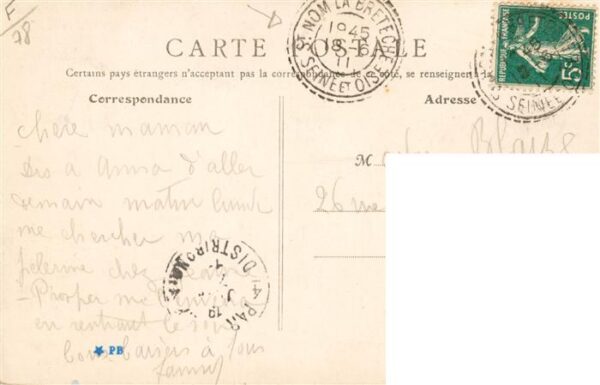 F
78
CARTE POSTALE
Certains pays étrangers n'acceptent pas la correspondance de ce côté, se renseigner à la
Correspondance
Adresse
ST NOM LA BRETECHE
19 45
18
11
SEINE ET OISE
REPUBLIQUE FRANÇAISE
POSTES
5c
SEINE
chère maman
Dis à Anna d'aller
demain matin lundi
me chercher ma
pelerine chez
- Prosper me
en rentrant le soir
bons baisers à tous
Fanny
M Blaise
26 rue
PAR
DISTRIBUTION
PB